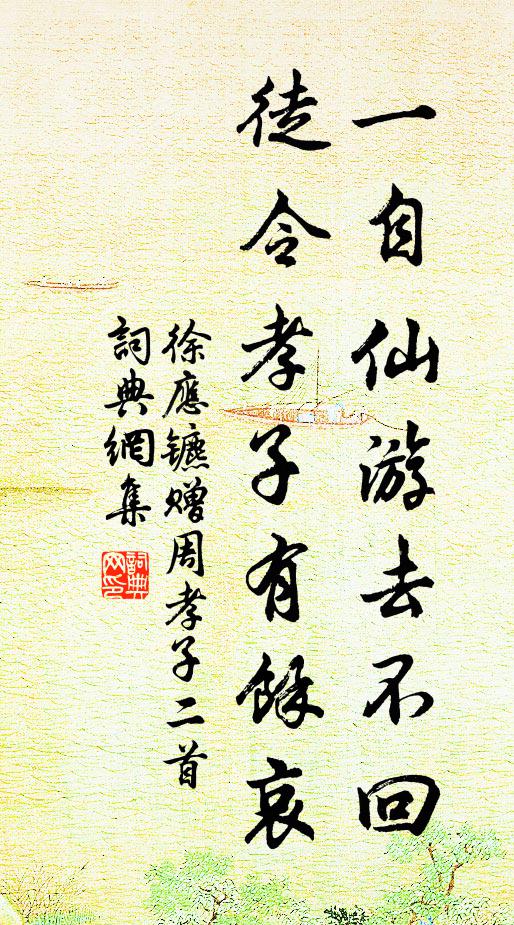 一自仙游去不回
徒令孝子有馀哀
徐應鑣赠周孝子二首
詞典網集
詞典网印